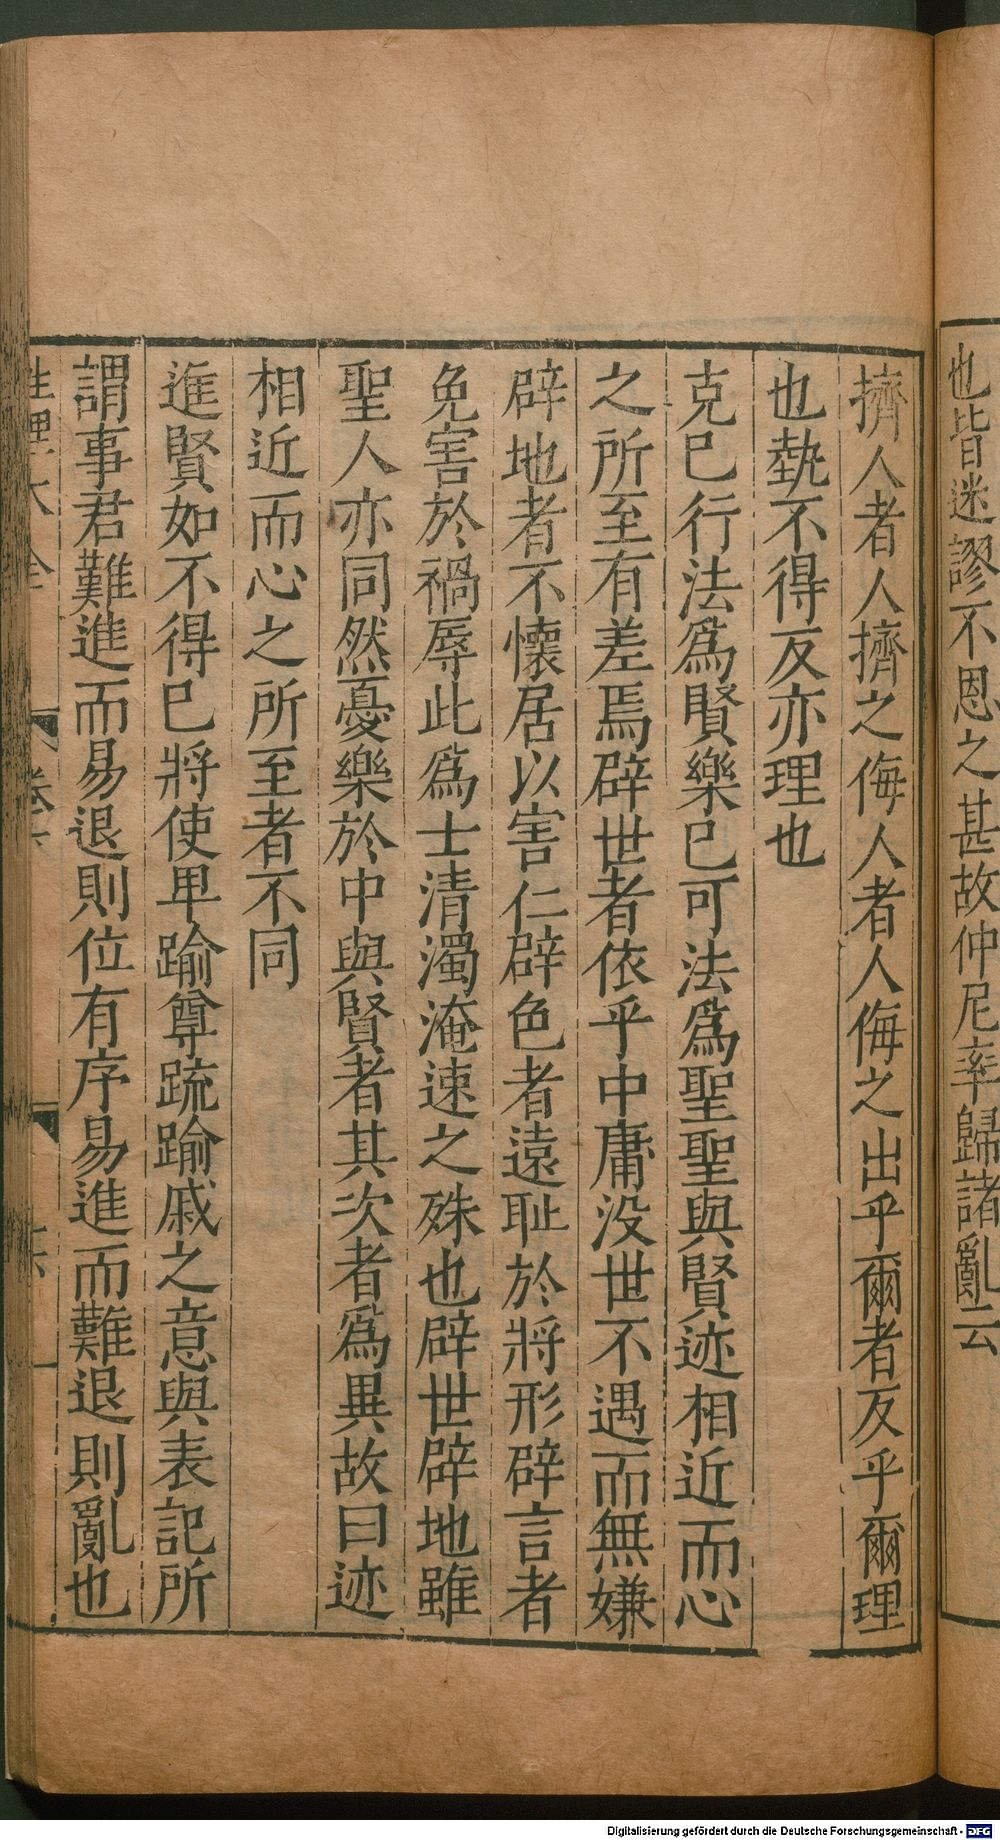 也皆迷謬不思之甚故仲尼率歸諸亂云
擠人者人擠之侮人者人侮之出乎爾者反乎爾理
也埶不得反亦理也
克已行法爲賢樂已可法爲聖聖與賢迹相近而心
之所至有差焉辟世者依乎中庸没世不遇而無嫌
辟地者不懷居以害仁辟色者遠耻於將形辟言者
免害於禍辱此爲士清濁淹速之殊也辟世辟地雖
聖人亦同然憂樂於中與賢者其次者爲異故曰迹
相近而心之所至者不同
進賢如不得已將使卑踰尊䟽踰戚之意與表記所
謂事君難進而易退則位有序易進而難退則亂也
性理大全
Digitalisierung gefördert durch die Deutsche Forschungsgemeinschaft - DFG